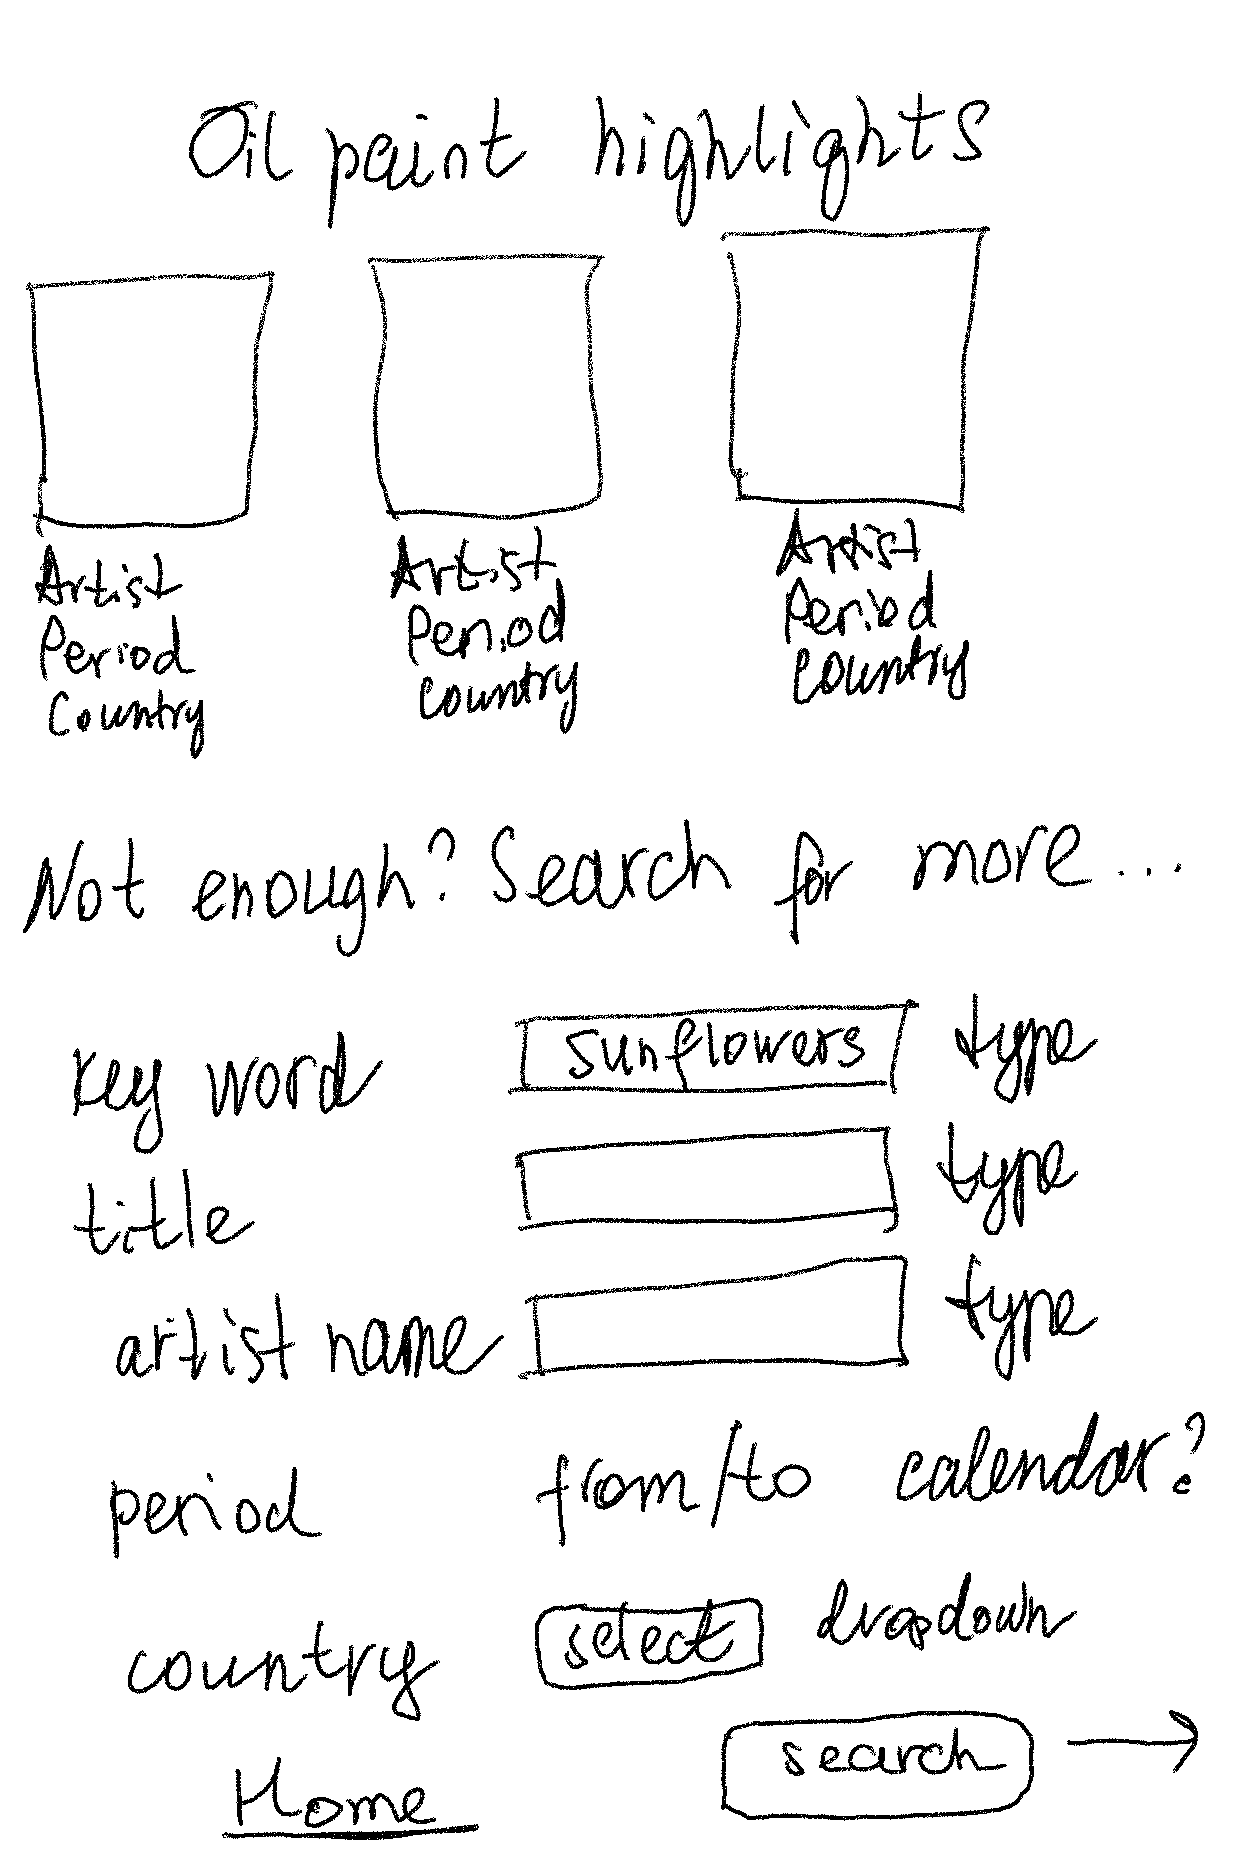 Oil paint highlights
Artist Artist Artist
Period Period Period
Country Country Country
Not enough? Search for more...
key word sunflowers type
title type
artist name type
period from/to calendar?
country select dropdown
search →
Home